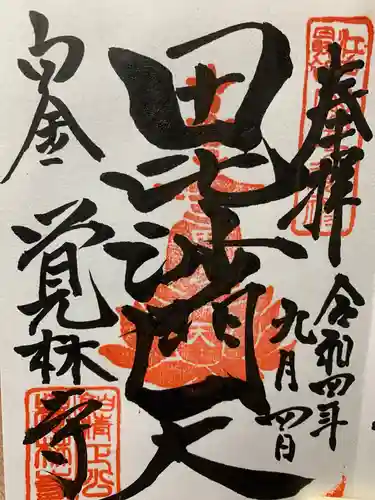 奉拝
令和四年
九月四日
毘沙門天
白金
覚林寺